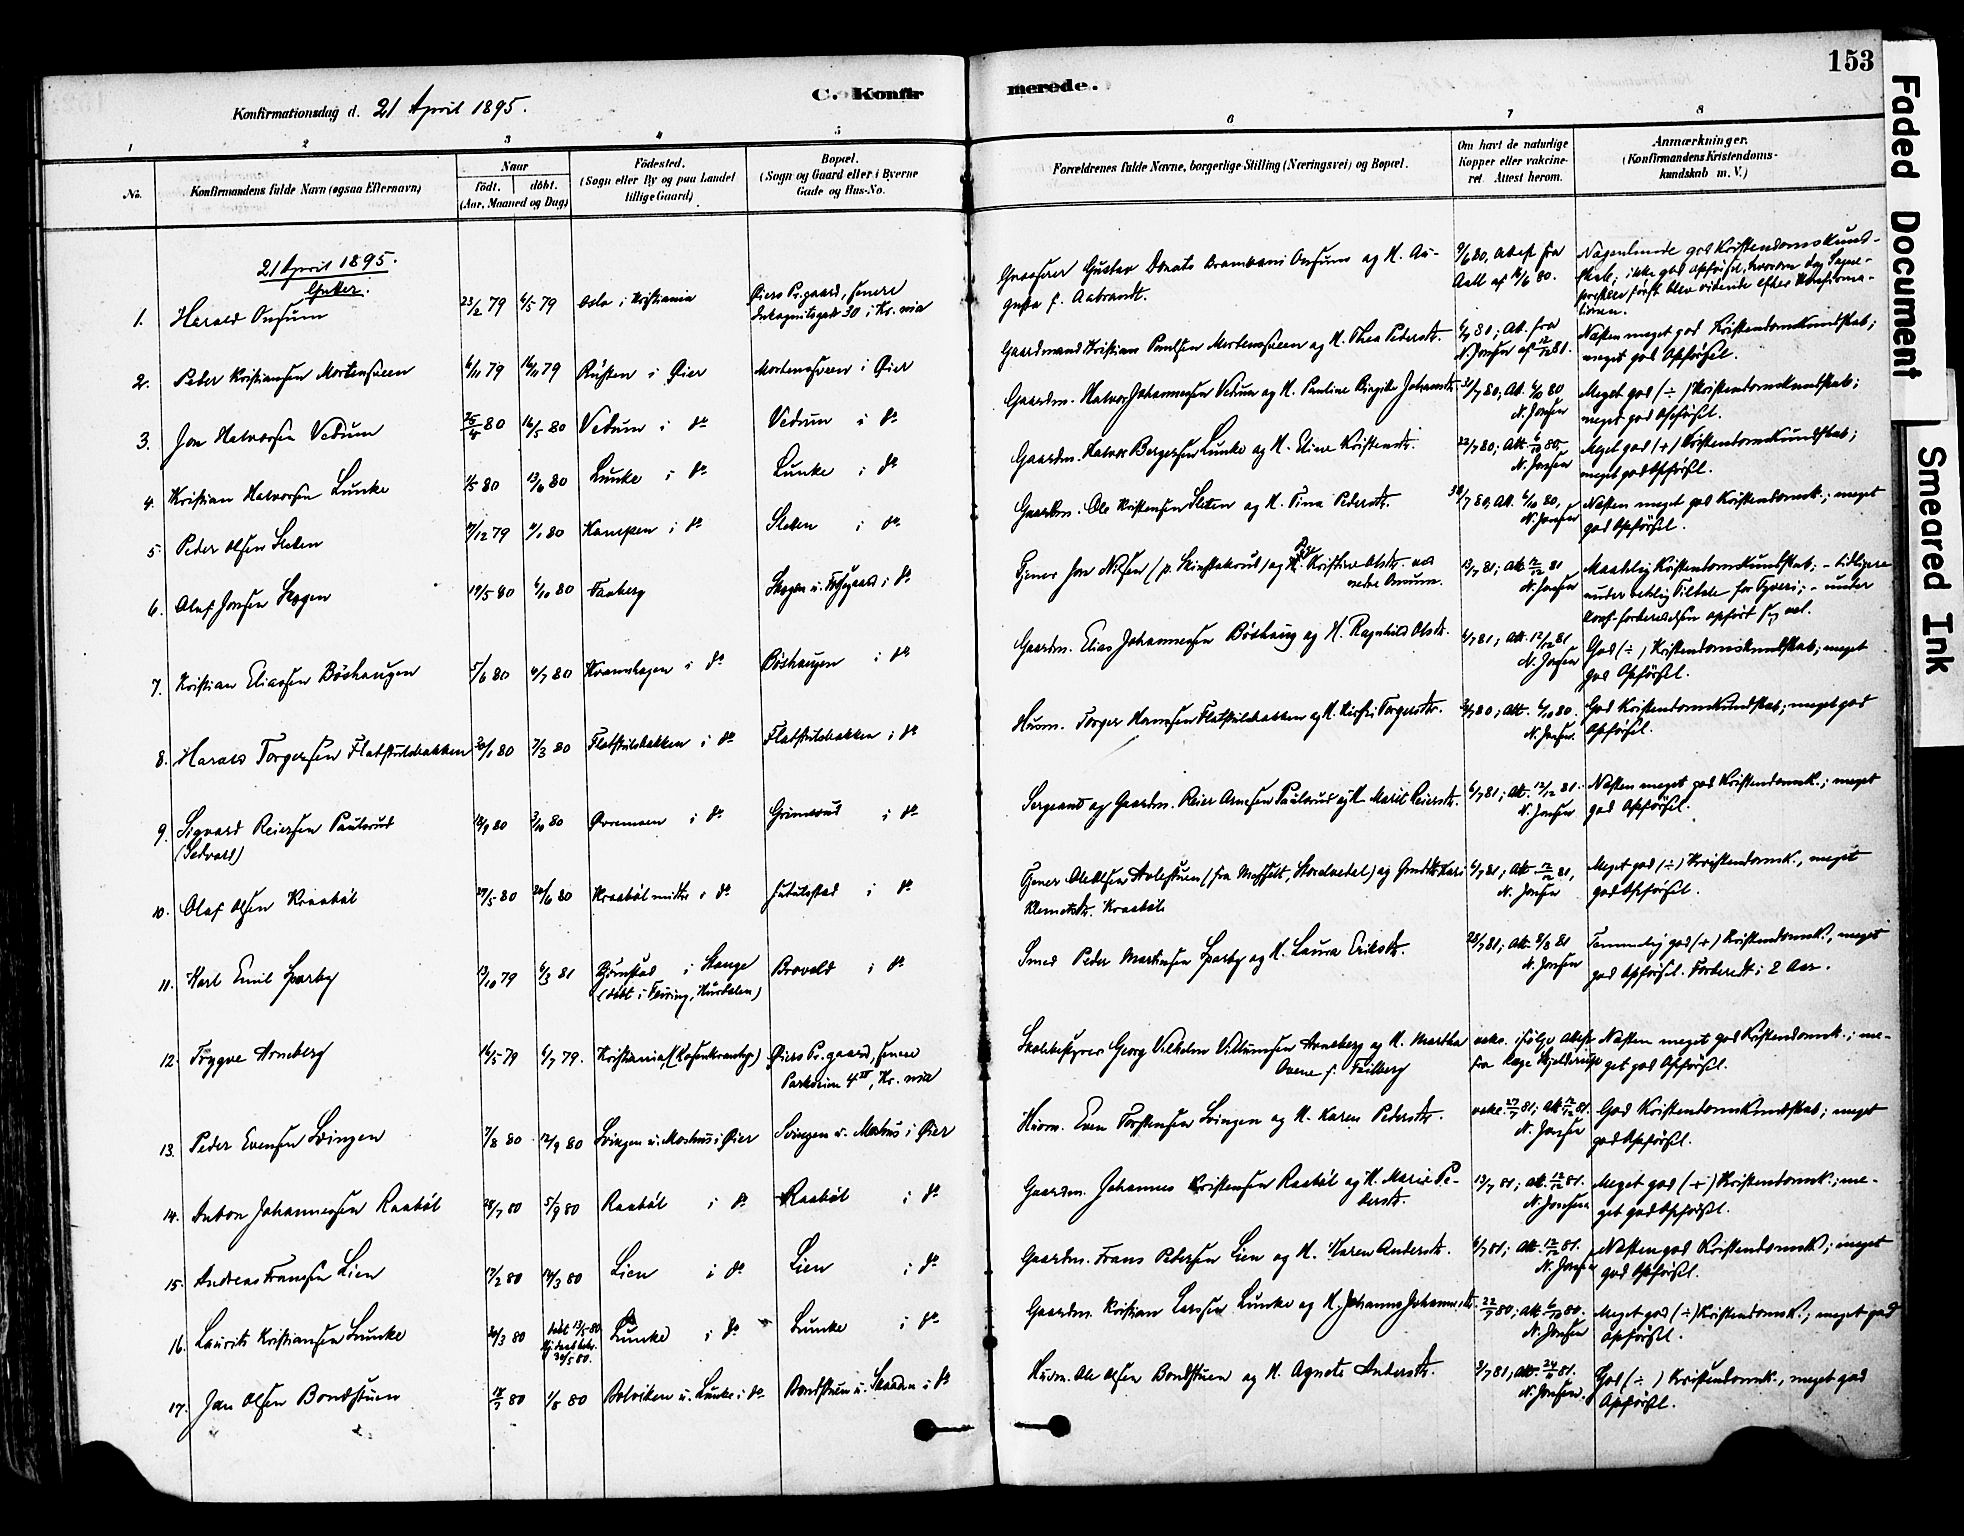 153
C. Konfirmerede.
Faded Document
Smeared Ink
Konfirmationsdag d. 21 April 1895.
1 2 3 4 5 6 7 8
No.
Konfirmandens fulde Navn (ogsaa Efternavn)
Naar
født. døbt.
(Aar, Maaned og Dag)
Fødested.
(Sogn eller By og paa Landet
tillige Gaard)
Bopæl.
(Sogn og Gaard eller i Byerne
Gade og Hus-No.
Forældrenes fulde Navne, borgerlige Stilling (Næringsvei) og Bopæl.
Om havt de naturlige
Kopper eller vakcine-
ret Attest herom.
Anmærkninger.
(Konfirmandens Kristendoms-
kundskab m. V.)
21 April 1895.
Gutter.
1. Harald Onsum 23/2 79 4/5 79 Oslo i Kristiania Øiers Pr.gaard, senere
Inkognitogade 30 i Kr.ania
Grosserer Gustav Donato Brambani Onsum og H. Au-
gusta f. Aabrandt.
Nogenlunde god Kristendomskund-
skab; ikke god Opførsel, hvorom dog Sogne-
presten først blev vidende efter Konfirma-
tionen.
2. Peder Kristiansen Mortensveen 6/11 79 16/11 79 Rusten i Øier Mortensveen i Øier
Gaardmand Kristian Paulsen Mortensveen og H. Thea Pedersdtr.
N. Jonsen af 12/12 81.
Næsten meget god Kristendomskundskab;
meget god Opførsel.
3. Jon Halvorsen Vedum 25/4 80 16/5 80 Vedum i do Vedum i do
Gaardm. Halvor Johannesen Vedum og H. Pauline Birgitte Johansdtr. 31/7 80; Att. 6/10 80
N. Jonsen
Meget god (÷) Kristendomskundskab;
meget god Opførsel.
4. Kristian Halvorsen Lunke 1/5 80 13/6 80 Lunke i do Lunke i do
Gaardm. Halvor Bergersen Lunke og H. Eline Kristensdtr. 22/7 80; Att. 6/10 80
N. Jonsen
Meget god (+) Kristendomskundskab;
meget god Opførsel.
5. Peder Olsen Sleten 17/12 79 4/1 80 Kampen i do Sleten i do
Gaardm. Ole Kristensen Sleten og H. Tina Pedersdtr. 30/7 80, Att. 6/10 80,
N. Jonsen
Næsten meget god Kristendomsk.; meget
god Opførsel.
6. Oluf Jonsen Skogen 19/5 80 6/10 80 Faaberg
Tjener Jon Nilsen
13/7 81; Att. 12/12 81
N. Jonsen
Maadelig Kristendomskundskab; - tidligere
under retslig Tiltale for Tyveri; - under
Konf.forberedelsen opført sig vel.
7. Kristian Eliassen Bøshaugen 5/6 80 4/7 80 Kramhagen i do Bøshaugen i do
Gaardm. Elias Johannesen Bøshaug og H. Ragnhild Olsdtr. 6/7 81; Att. 12/12 81
N. Jonsen
God (÷) Kristendomskundskab; meget
god Opførsel.
8. Harald Torgersen Flatstulsbakken 20/1 80 7/3 80 Flatstulsbakken i do Flatstulsbakken i do
Husm. Torger Hansen Flatstulsbakken og H. Kirsti Torgersdtr. Att. 6/10 80.
N. Jonsen.
God Kristendomskundskab; meget god
Opførsel.
9. Sigvard Reiersen Paulsrud
(Sedvard)
12/9 80 3/10 80 Øvremoen i do Grimsrud i do
Sergeant og Gaardm. Reier Arnesen Paulsrud og H. Marit Reiersdtr. 6/7 81; Att. 12/12 81.
N. Jonsen
Næsten meget god Kristendomsk.; meget
god Opførsel.
10. Olaf Olsen Kraabøl 29/5 80 20/6 80 Kraabøl nustre i do i do
Tjener Ole Olsen
Klemetsdtr. Kraabøl
6/7 81; Att. 12/12 81,
N. Jonsen
Meget god (÷) Kristendomsk., meget
god Opførsel.
11. Karl Emil Sparby 13/10 79 6/3 81 Bjørnstad i Stange
(døbt i Feiring, Hurdalen)
Brovold i do
Smed Peder Martinsen Sparby og H. Laura Eriksdtr. 28/7 81; Att. 9/8 81
N. Jonsen
Temmelig god (+) Kristendomsk., meget
god Opførsel. Forberedt i 2 Aar.
12. Trygve Arneberg 16/5 79 6/7 79. Kristiania (Rosenkrantzgt.) Øiers Pr.gaard, senere
Parkveien 4 IV, Kr.ania
Skolebestyrer Georg Vilhelm Villumsen Arneberg og H. Martha
vakc. ifølge Attest
fra Aage Skjelderup
Næsten meget god Kristendomsk.; me-
get god Opførsel.
13. Peder Evensen Svingen 7/8 80 12/9 80 Svingen u. Moshus i Øier Svingen u. Moshus i Øier
Husm. Even Torstensen Svingen og H. Karen Pedersdtr. vakc. 27/7 81; Att. 12/12 81.
N. Jonsen
God Kristendomskundskab; meget
god Opførsel.
14. Anton Johannessen Raabøl 28/7 80 5/9 80 Raabøl i do Raabøl i do
Gaardm. Johannes Kristensen Raabøl og H. Marie Pe-
dersdtr.
13/7 81; Att. 12/12 81.
N. Jonsen
Meget god (+) Kristendomsk.; me-
get god Opførsel.
15. Andreas Fransen Lien 17/2 80 14/3 80 Lien i do Lien i do
Gaardm. Frans Pedersen Lien og H. Maren Andersdtr. 6/7 81; Att. 12/12 81.
N. Jonsen
Næsten god Kristendomsk.; meget
god Opførsel.
16. Laurits Kristiansen Lunke 20/3 80 døbt 13/5 80
30/5 80.
Lunke i do Lunke i do
Gaardm. Kristian Larssen Lunke og H. Johanna Johannesdtr. 22/7 80; Att. 6/10 80.
N. Jonsen
Meget god (÷) Kristendomsk.; meget god
Opførsel.
17. Jan Olsen Bondstuen 18/7 80 1/8 80 Bolviken u. Lunke i do Bondstuen u. Skaden i do
Husm. Ole Olsen Bondstuen og H. Agnete Andersdtr. 3/7 81, Att. 24/8 81.
N. Jonsen.
God (÷) Kristendomsk., meget god
Opførsel.